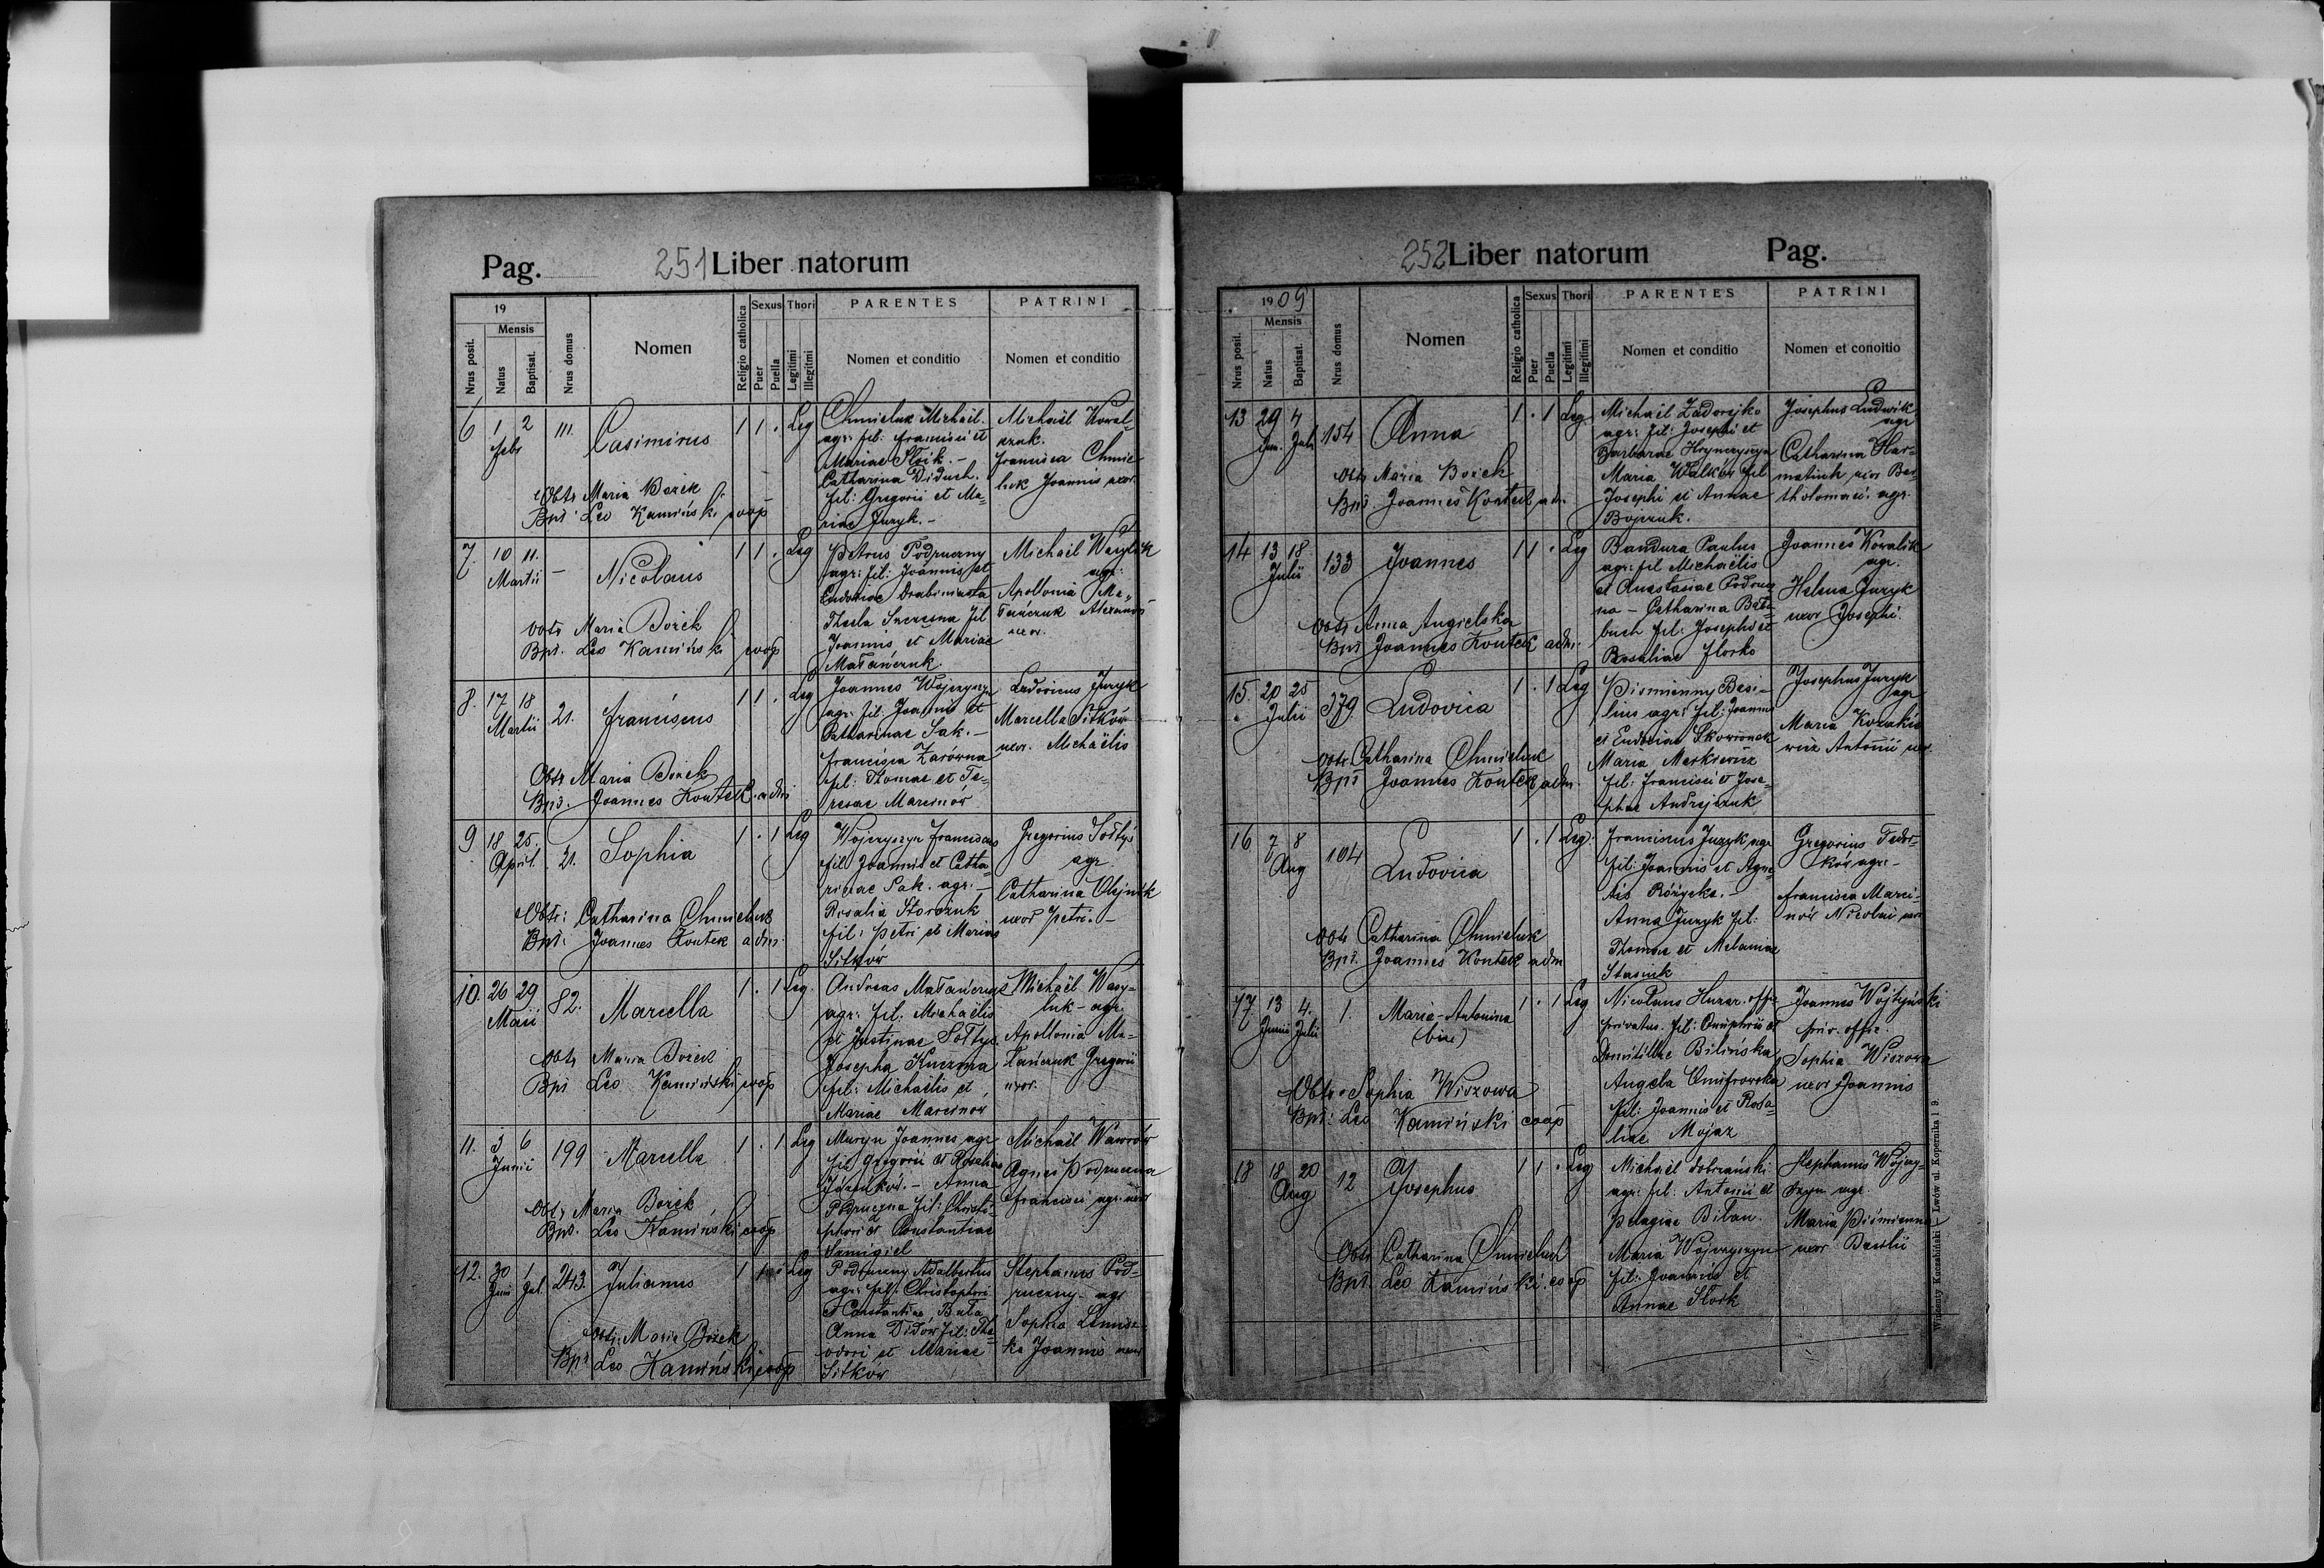 Pag. 251 Liber natorum
19
Mensis
Nrus posit.
Natus
Baptisat.
Nrus domus
Nomen
Religio catholica
Sexus
Puer
Puella
Thori
Legitimi
Illegitimi
PARENTES
Nomen et conditio
PATRINI
Nomen et conditio
6 1 2 Febr 111. Casimirus 1 1 . Leg
Obtr Maria Bożek
Bpt: Leo Kamiński coop
Chmieluk Michaël.
agr: fil: Francisci et
Mariae Słoik.-
Catharina Diduch.
fil: Gregorii et Ma-
riae Juzyk.-
Michaël Kowal-
czuk.
Francisca Chmie
luk Joannis uxor
7. 10 11. Martii - Nicolaus 1 1 . Leg
Obtr Maria Bożek
Bpt. Leo Kamiński coop
Petrus Podruczny
agr: fil: Joannis et
Eudociae
Thecla fil
Joannis et Mariae
Matańczuk.
Michaël Wasyluk
agr:
Apollonia Ma-
tańczuk
uxor.
8. 17 18 Martii 21. Franciscus 1 1 . Leg
Obtr Maria Bożek
Bpt. Joannes Kontek adm
Joannes Wojczyszyn
agr: fil: Joannis et
Catharinae Sak.-
Francisca Zarówna
fil: Thomae et Te-
resae Marcinów
Ludovicus Juzyk
Marcella Sitków
uxor. Michaëlis
9 18 25. April. 21. Sophia 1 . 1 Leg
Obtr: Catharina Chmieluk
Bpt: Joannes Kontek adm.
Wojczyszyn Franciscus
fil Joannis et Catha-
rinae Sak. agr.-
Rosalia Storożuk
fil: Petri et Mariae
Sitków
Gregorius Sołtys
agr.
Catharina Olejnik
uxor Petri.-
10. 26 29 Maii 82. Marcella 1 . 1 Leg.
Obtr Maria Bożek
Bpt Leo Kamiński coop
Andreas Matańczuk
agr: fil: Michaëlis
et Justinae Sołtys.
Josepha Kuczma
fil: Michaëlis et
Mariae Marcinów
Michaël Wasy-
luk - agr.
Apollonia Ma-
tańczuk Gregorii
uxor.
11. 3 6 Junii 199 Marcella 1 . 1 Leg
Obtr Maria Bożek
Bpt. Leo Kamiński coop
Muryn Joannes agr
fil Gregorii et Rosaliae
- Anna
Podruczna fil: Christo-
phori et Constantiae
Szmigiel
Michaël Wawrów
Agnes Podruczna
Francisci agr. uxor
12. 30 Juni 1 Jul. 243. Julianus 1 1 . Leg
Obtr: Maria Bożek
Bpt Leo Kamiński coop
Podruczny Adalbertus
agr: fil: Christophori
et Constantiae Buła
Anna Didów fil: The-
odori et Mariae
Sitków
Stephanus Pod-
ruczny - agr
Sophia
Joannis uxor
252 Liber natorum Pag.
1909
Mensis
Nrus posit.
Natus
Baptisat.
Nrus domus
Nomen
Religio catholica
Sexus
Puer
Puella
Thori
Legitimi
Illegitimi
PARENTES
Nomen et conditio
PATRINI
Nomen et conoitio
13 29 Jun. 4 Juli 154 Anna 1 . 1 Leg
Obtr Maria Bożek
Bpt. Joannes Kontek adm.
Michaël Zadorejko
agr: fil: Josephi et
Barbarae Hrynczyszyn
Maria Walków fil
Josephi et Annae
Bojczuk.
Josephus Ludwik
agr
Catharina Har-
matiuk uxor Bar-
tholomaei. agr.
14 13 18 Julii 133 Joannes 1 1 . Leg
Obtr Anna Angielska
Bpt Joannes Kontek adm.
Bandura Paulus
agr: fil Michaëlis
et Anastasiae Podrucz
na - Catharina Bała
buch fil: Josephi et
Rosaliae Horko
Joannes Kowalik
agr.
Helena Juzyk
uxor Josephi.
15. 20 25 Julii 379. Ludovica 1 . 1 Leg
Obtr. Catharina Chmieluk
Bpt Joannes Kontek adm.
Pismienny Basi-
lius agr: fil: Joannis
et Eudociae Skowronek
Maria Markiewicz
fil: Francisci et Jose-
phae Andrejczuk
Josephus Juzyk
agr
Maria Kozakie
wicz Antonii uxor.
16 7 8 Aug 104 Ludovica 1 . 1 Leg.
Obtr Catharina Chmieluk
Bpt. Joannes Kontek adm
Franciscus Juzyk agr
fil: Joannis et Agne-
tis Różycka.-
Anna Juzyk fil:
Thomae et Melaniae
Stasiuk
Gregorius Fedor-
ków agr.-
Francisca Marci-
nów Nicolai uxor
17. 13 Junii 4. Julii 1. Maria-Antonina 1 . 1 Leg
(bin.)
Obtr Sophia Wiszowa
Bpt: Leo Kamiński coop
Nicolaus Huzar. offic
privatus. fil: Onuphrii et
Domitillae Bilińska
Angela Onufrowska
fil: Joannis et Rosa-
liae Mojaz
Joannes Wojtyński
priv. offic.
Sophia Wiszowa
uxor Joannis
18 18 20 Aug 12 Josephus 1 1 . Leg
Obtr Catharina Chmieluk
Bpt. Leo Kamiński. coop
Michaël Dobrzański
agr: fil: Antonii et
Pelagiae Bilan.
Maria Wojczyszyn
fil: Joannis et
Annae Słoik
Stephanus Wojczy-
szyn agr.
Maria Piśmienna
uxor Basilii
Wincenty Kuczabiński Lwów ul. Kopernika l 9.